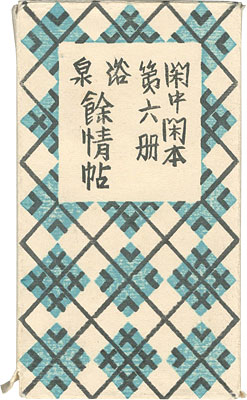 閑中閑本
第六册
浴泉
餘情帖